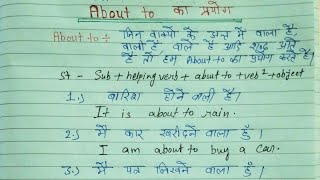 About to का प्रयोग
About to ÷ जिन वाक्यों के अन्त में वाला है,
वाली है, वाले है आदि शब्द आते
है तो हम About to का प्रयोग करते है।
St - Sub + helping verb + about to + verb¹ + object
1.) बारिश होने वाली है।
It is about to rain.
2.) मैं कार खरीदने वाला हूँ।
I am about to buy a car.
3.) मैं पत्र लिखने वाला हूँ।